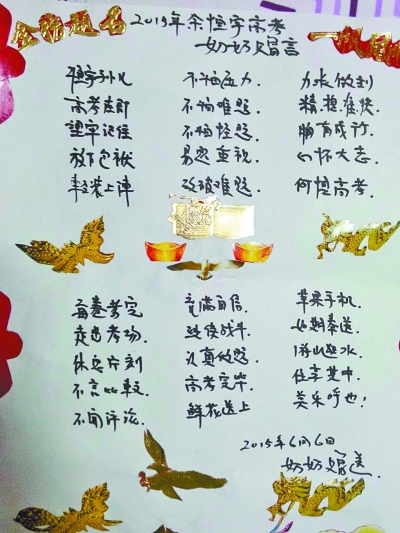 金榜题名
一帆
2015年余恒宇高考
奶奶赠言
恒宇孙儿
高考在即
望字记住
放下包袱
轻装上阵
不怕压力.
不怕难题.
不怕怪题.
易题重视.
攻破难题.
力求做到
胸有成竹.
心怀大志.
何惧高考.
每卷考完
走出考场.
休息片刻
不言比较.
不闻评论.
充满自信.
继续战斗.
认真做题.
高考完毕.
鲜花送上
苹果手机.
如期奉送.
游山玩水.
任享其中.
美乐呼也!
2015年6月6日
奶奶赠送.